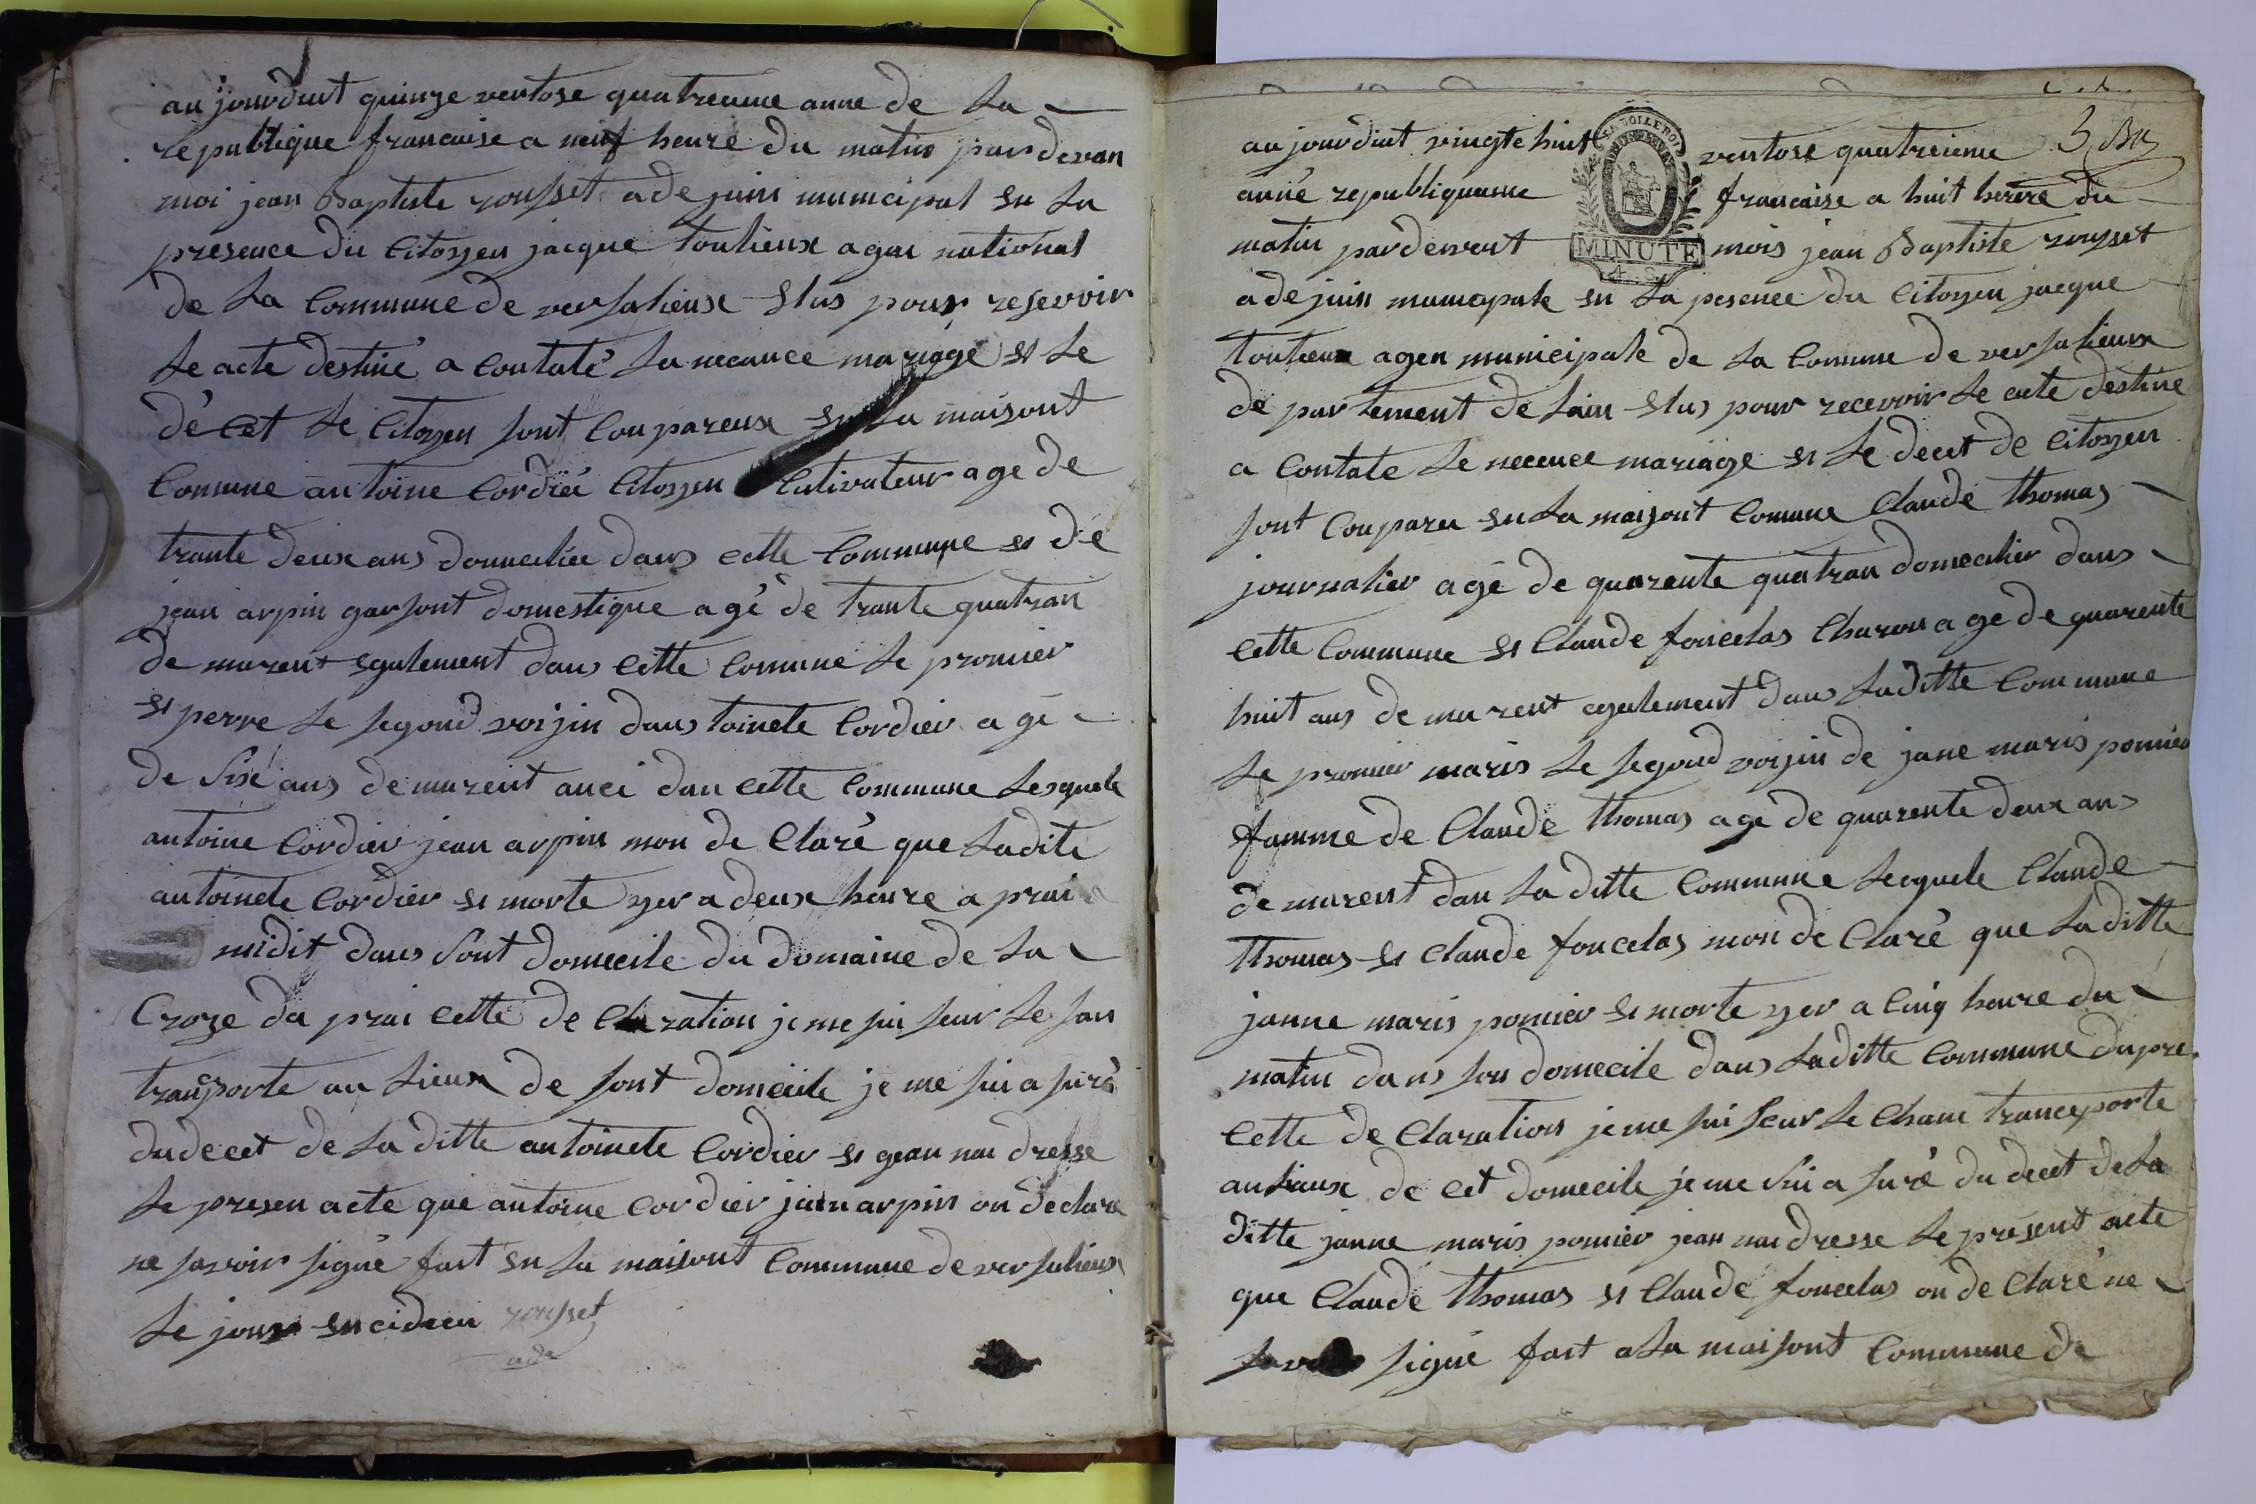 aujourduit quinze ventose quatreieme anne de la
republique francaise a neuf heure du matin par devan
moi jean Baptiste rousset adejuin municipal en la
presence du Citoyen jacque toulieux agan national
de la Commune de versalieux elus pour resevoir
le acte destiné a Contaté la necance mariage et le
décet le Citoyen sont Conpareux en la maisont
Commune antoine Cordiéé Citoyen Cultivateur age de
trante deux ans domeciliée dans cette Commune et de
jean arpin garsont domestique agé de trante quatran
de murent egalement dans Cette Comune le promier
et perre le segond voisin dans toinete Cordier agé
de Sixé ans demurent auci dan cette Commune lesquele
antoine Cordier jean arpin mon de Claré que ladite
antoinete Cordier et morte yer a deux heure a prai
midit dans sont domecile du domaine de la
Croze da prai cette de Claration je me sui seur le san
transporte au lieux de sont domecile je me sui a suré
dudecet de la ditte antoinete Cordier et gean nai dresse
le presen acte que antoine Cordier jean arpin on declare
ne savoir signé fait en la maisont Commune de versalieux
le jour en cideceu rousset
ade
3 Bu
aujourduit vingte huit ventose quatreieme
année republiquaine francaise a huit heure du
matin pardevent mois jean Baptiste rousset
MINUTE
adejuin municipale en la pesence du Citoyen jacque
toulieux agen municipale de la Comune de versalieux
de partement de lain elus pour recevoir le acte destine
a Contate le necence mariage et le decet de Citoyen
sont Conparu en la maisont Comune Claude thomas
journalier agé de quarente quatran domecilier dans
Cette Commune et Claude foncelas Charon age de quarente
huit ans de murent egalement dans laditte Commune
le promier maris le segond voisin de jane maris ponnier
famme de Claude thomas age de quarente deux ans
de murent dan la ditte Commune lesquele Claude
thomas et Claude foncelas mon de Claré que laditte
janne maris ponnier et morte yer a Cinq heure du
matin dans son domecile dans laditte Commune dapre
Cette de Claration je me sui seur le Chanc tranceporte
au lieux de cet domecile je me sui a suré du decet de la
ditte janne maris ponnier jean nai dresse le présent acte
que Claude thomas et Claude foncelas on de Claré ne
signé fait a la maisont Commune de